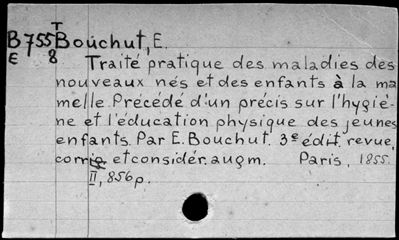 T
B755 Bouchut, E.
E 8
Traité pratique des maladies des
nouveaux nés et des enfants à la ma
melle. Précédé d'un précis sur l'hygiè-
ne et l'éducation physique des jeunes
enfants. Par E. Bouchut. 3e édit. revue,
corrig. et considér. augm. Paris, 1855.
II, 856 p.